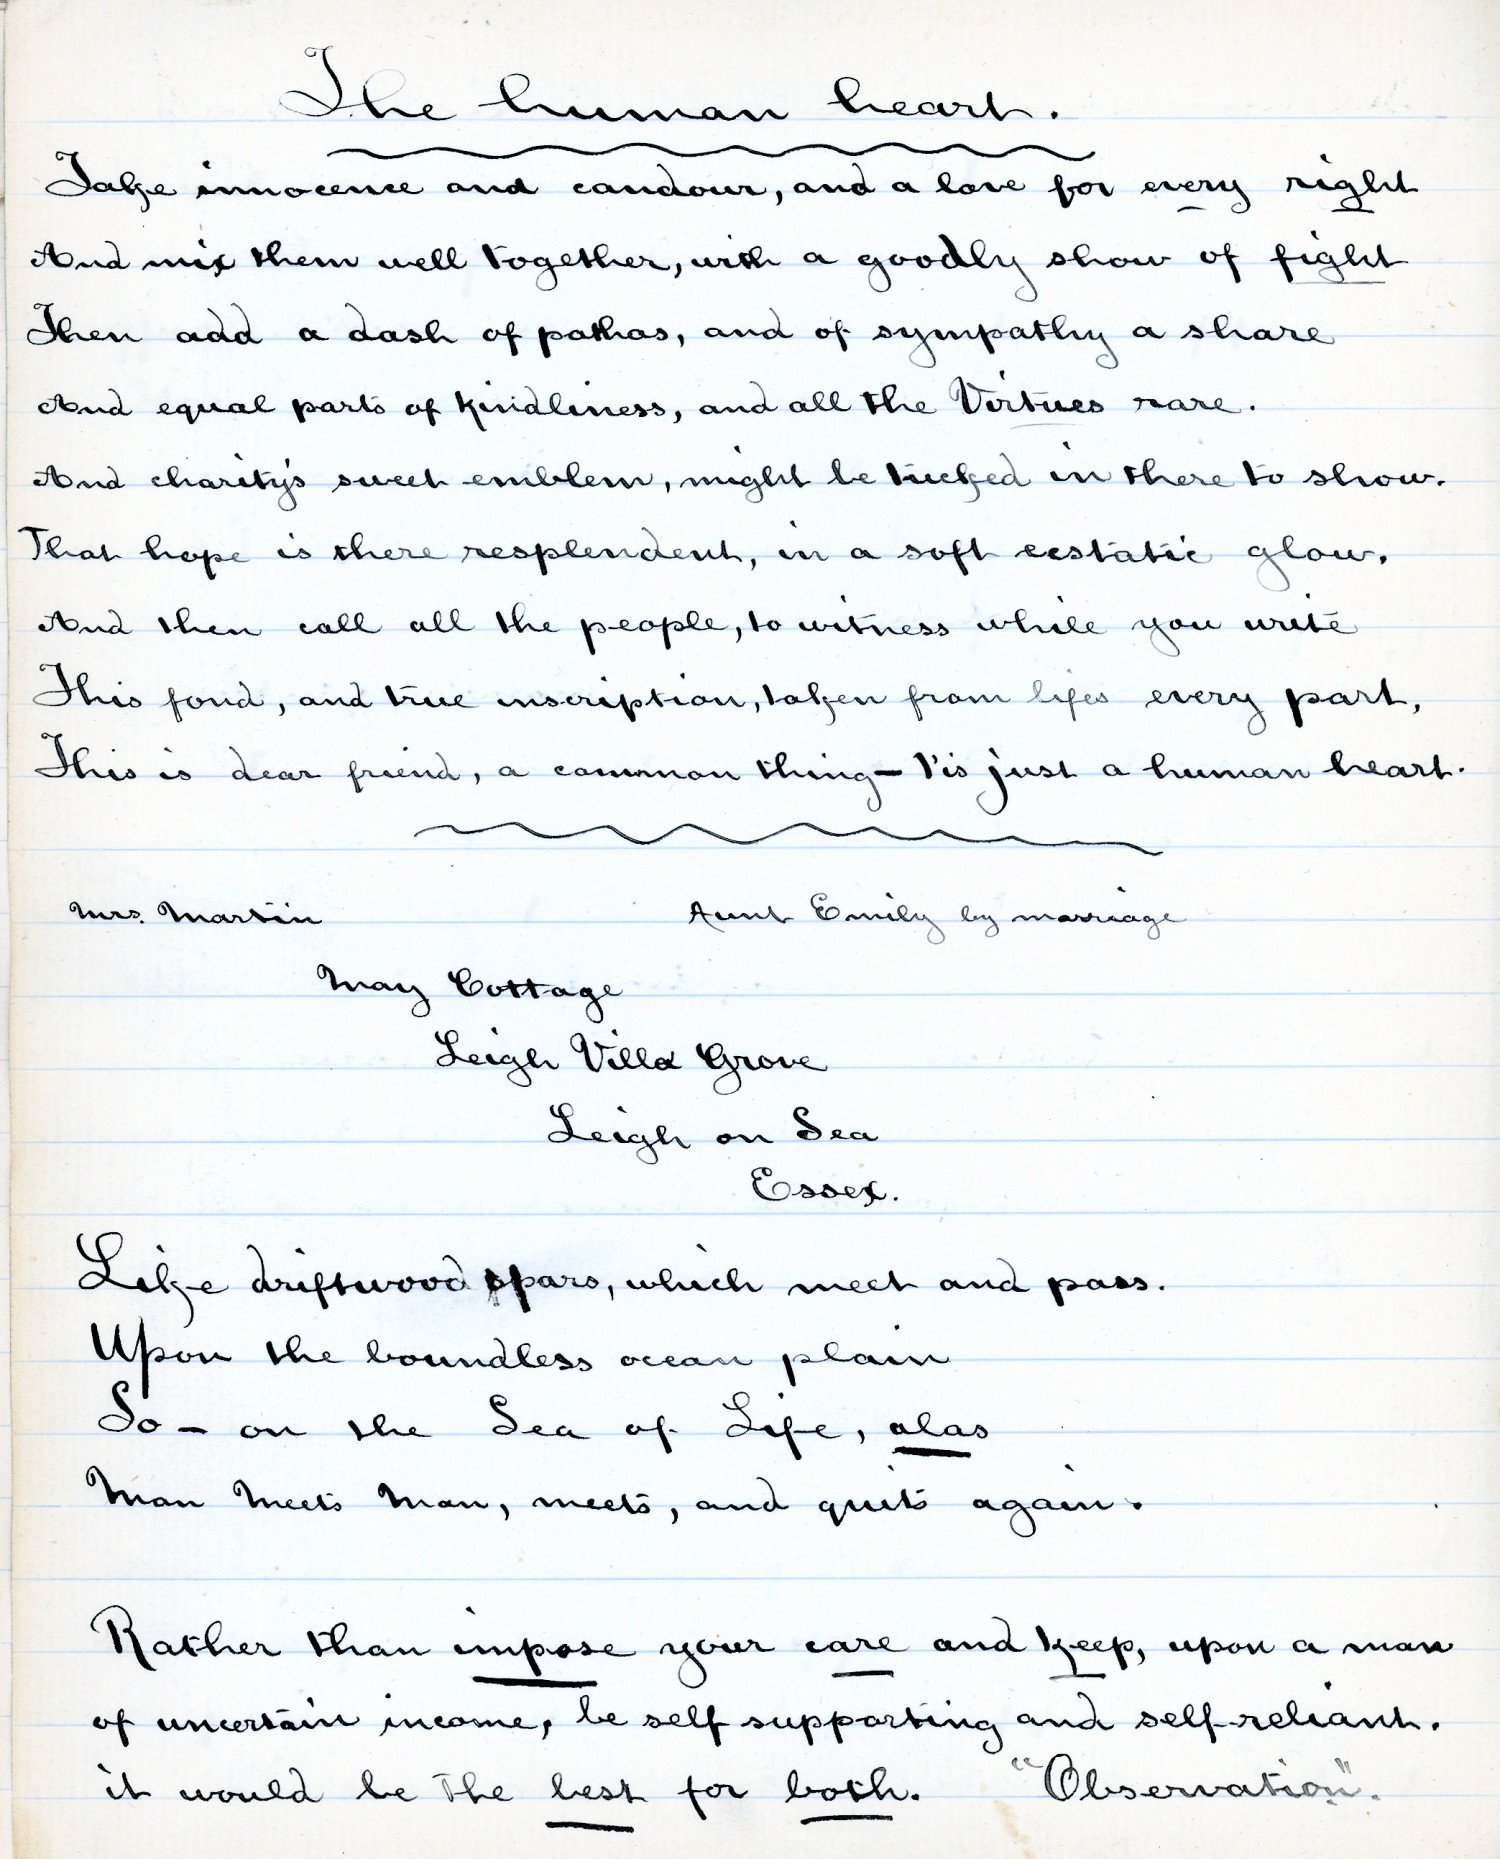 The human heart.
Take innocence and candour, and a love for every right
And mix them well together, with a goodly show of fight
Then add a dash of pathos, and of sympathy a share
And equal parts of kindliness, and all the Virtues rare.
And charity's sweet emblem, might be tucked in there to show.
That hope is there resplendent, in a soft ecstatic glow.
And then call all the people, to witness while you write
This fond, and true inscription, taken from lifes every part,
This is dear friend, a common thing - t'is just a human heart.
Mrs. Martin Aunt Emily by marriage
May Cottage
Leigh Villa Grove
Leigh on Sea
Essex.
Like driftwood spars, which meet and pass.
Upon the boundless ocean plain
So - on the Sea of Life, alas
Man Meets Man, meets, and quits again.
Rather than impose your care and keep, upon a man
of uncertain income, be self supporting and self-reliant.
it would be the best for both. "Observation".